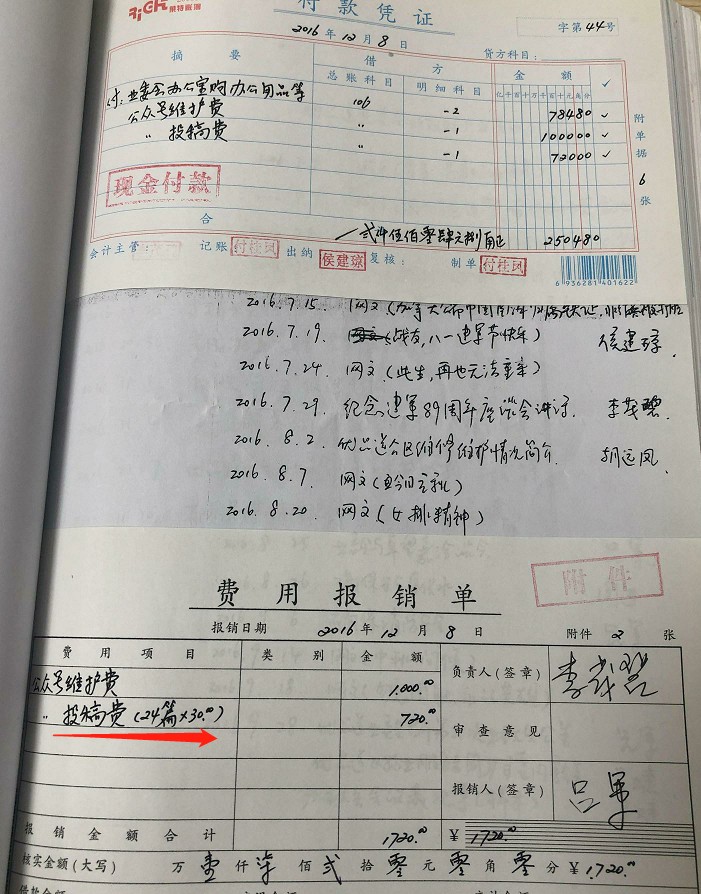 RiGR 莱特账簿
付款凭证
字第44号
2016年12月8日
贷方科目:
摘要 借方 金额 ✓
总账科目 明细科目 亿千百十万千百十元角分
付:业委会办公室购办公用品等 106 -2 78480 ✓
公众号维护费 〃 -1 100000 ✓
〃 投稿费 〃 -1 72000 ✓
附单据6张
现金付款
合 贰仟伍佰零肆元捌角正 250480
会计主管 记账 付桂凤 出纳 侯建琼 复核: 制单 付桂凤
6936281401622
2016.7.15. 网文
2016.7.19. (战友,八一建军节快乐) 侯建琼.
2016.7.24. 网文(此生,再也无法重来)
2016.7.29. 纪念建军89周年座谈会讲话. 李茂碧.
2016.8.2. 优品道合区维修维护情况简介. 胡远凤.
2016.8.7. 网文
2016.8.20. 网文(女排精神)
附件
费用报销单
报销日期 2016年12月8日 附件 2 张
费用项目 类别 金额 负责人(签章)
公众号维护费 1,000.00
〃 投稿费(24篇×30.00) 720.00 审查意见
报销人(签章) 吕军
报销金额合计 1720.00 ¥1720.00
核实金额(大写) 万壹仟柒佰贰拾零元零角零分 ¥1720.00
借款金额